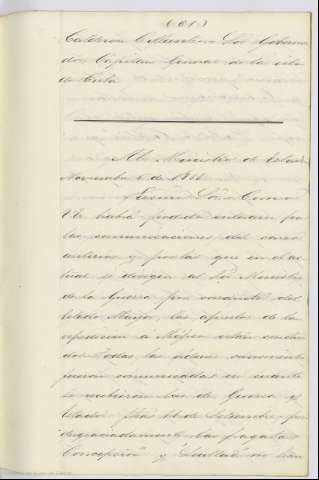 Calderon Collantes. Sor. Goberna
dor Capitan General de la isla
de Cuba.
Al Ministro de Estado
Noviembre 6 de 1861
Excmo Sor.
V.E. habrá podido enterarse por
las comunicaciones del correo
anterior y por las que en el ac
tual se dirigen al Sor. Ministro
de la Guerra por conducto del
Estado Mayor, los aprestos de la
expedicion á Méjico están
Todas las órdenes
fueron comunicadas en cuanto
se recibieron las de Guerra y
Estado fhas. 11 de Setiembre, pero
desgraciadamente las fragatas
"Concepcion" y "Lealtad" no han